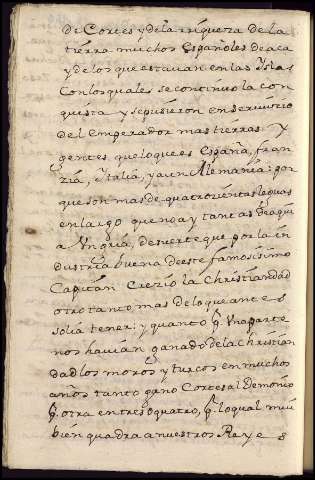 de Cortes y de la riqueza de la
tierra muchos Españoles de aca
y de los que estauan en las Yslas
Con los quales se continuo la con
quista y se pusieron en seruicio
del Emperador mas tierras y
gentes que lo que es España, fran
zia, Ytalia, y aun Alemania: por
que son mas de quatrozientas leguas
en largo que no ay tantas de aqui
a Vngria, de suerte que por la in
dustria buena de este famosissimo
Capitan Crezio la Christiandad
otro tanto mas de lo que antes
solia tener: y quanto q̃ Vna parte
nos hauian ganado de la Christian
dad los moros y turcos en muchos
años tanto gano Cortes al Demonio
q̃ otra en tres o quatro, q̃ lo qual mui
bien quadra a nuestros Reyes